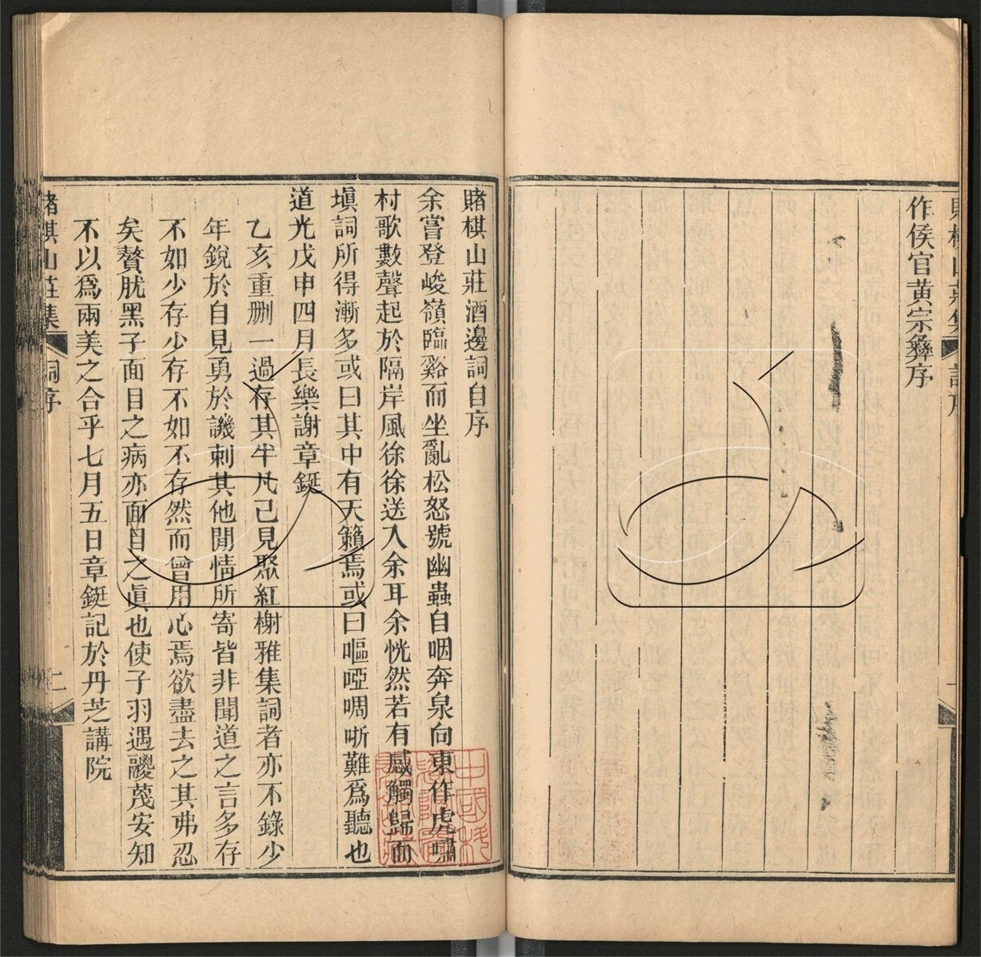 作侯官黃宗彝序
賭棋山莊酒邊詞自序
余嘗登峻嶺臨谿而坐亂松怒號幽蟲自咽奔泉向東作虎嘯
村歌數聲起於隔岸風徐徐送入余耳余恍然若有感觸歸而
塡詞所得漸多或曰其中有天籟焉或曰嘔啞啁哳難爲聽也
道光戊申四月長樂謝章鋌
乙亥重刪一過存其半凡已見聚紅榭雅集詞者亦不錄少
年銳於自見勇於譏刺其他閒情所寄皆非聞道之言多存
不如少存少存不如不存然而曾用心焉欲盡去之其弗忍
矣贅肬黑子面目之病亦面目之眞也使子羽遇鬷蔑安知
不以爲兩美之合乎七月五日章鋌記於丹芝講院
賭棋山莊集
詞序
二